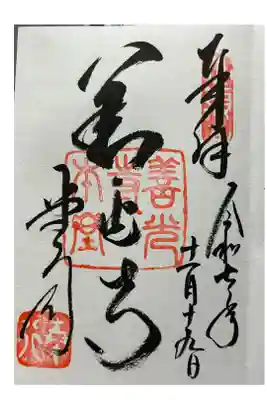 奉拝
令和七年
十一月十九日
善光寺
善光
寺
本堂